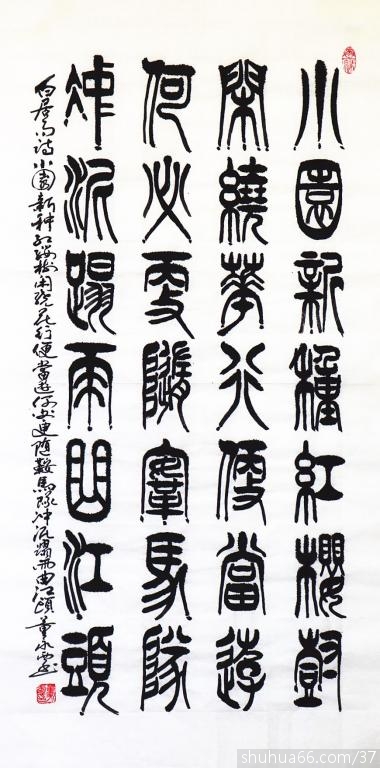 小園新種紅櫻樹
閑繞華行便當遊
何必更隨鞌馬隊
沖泥蹋雨曲江頭
白居易詩小園新种红樱樹闲绕花行便當遊何必更随鞍馬隊冲泥蹋雨曲江頭 董永
shuhua66.com/37